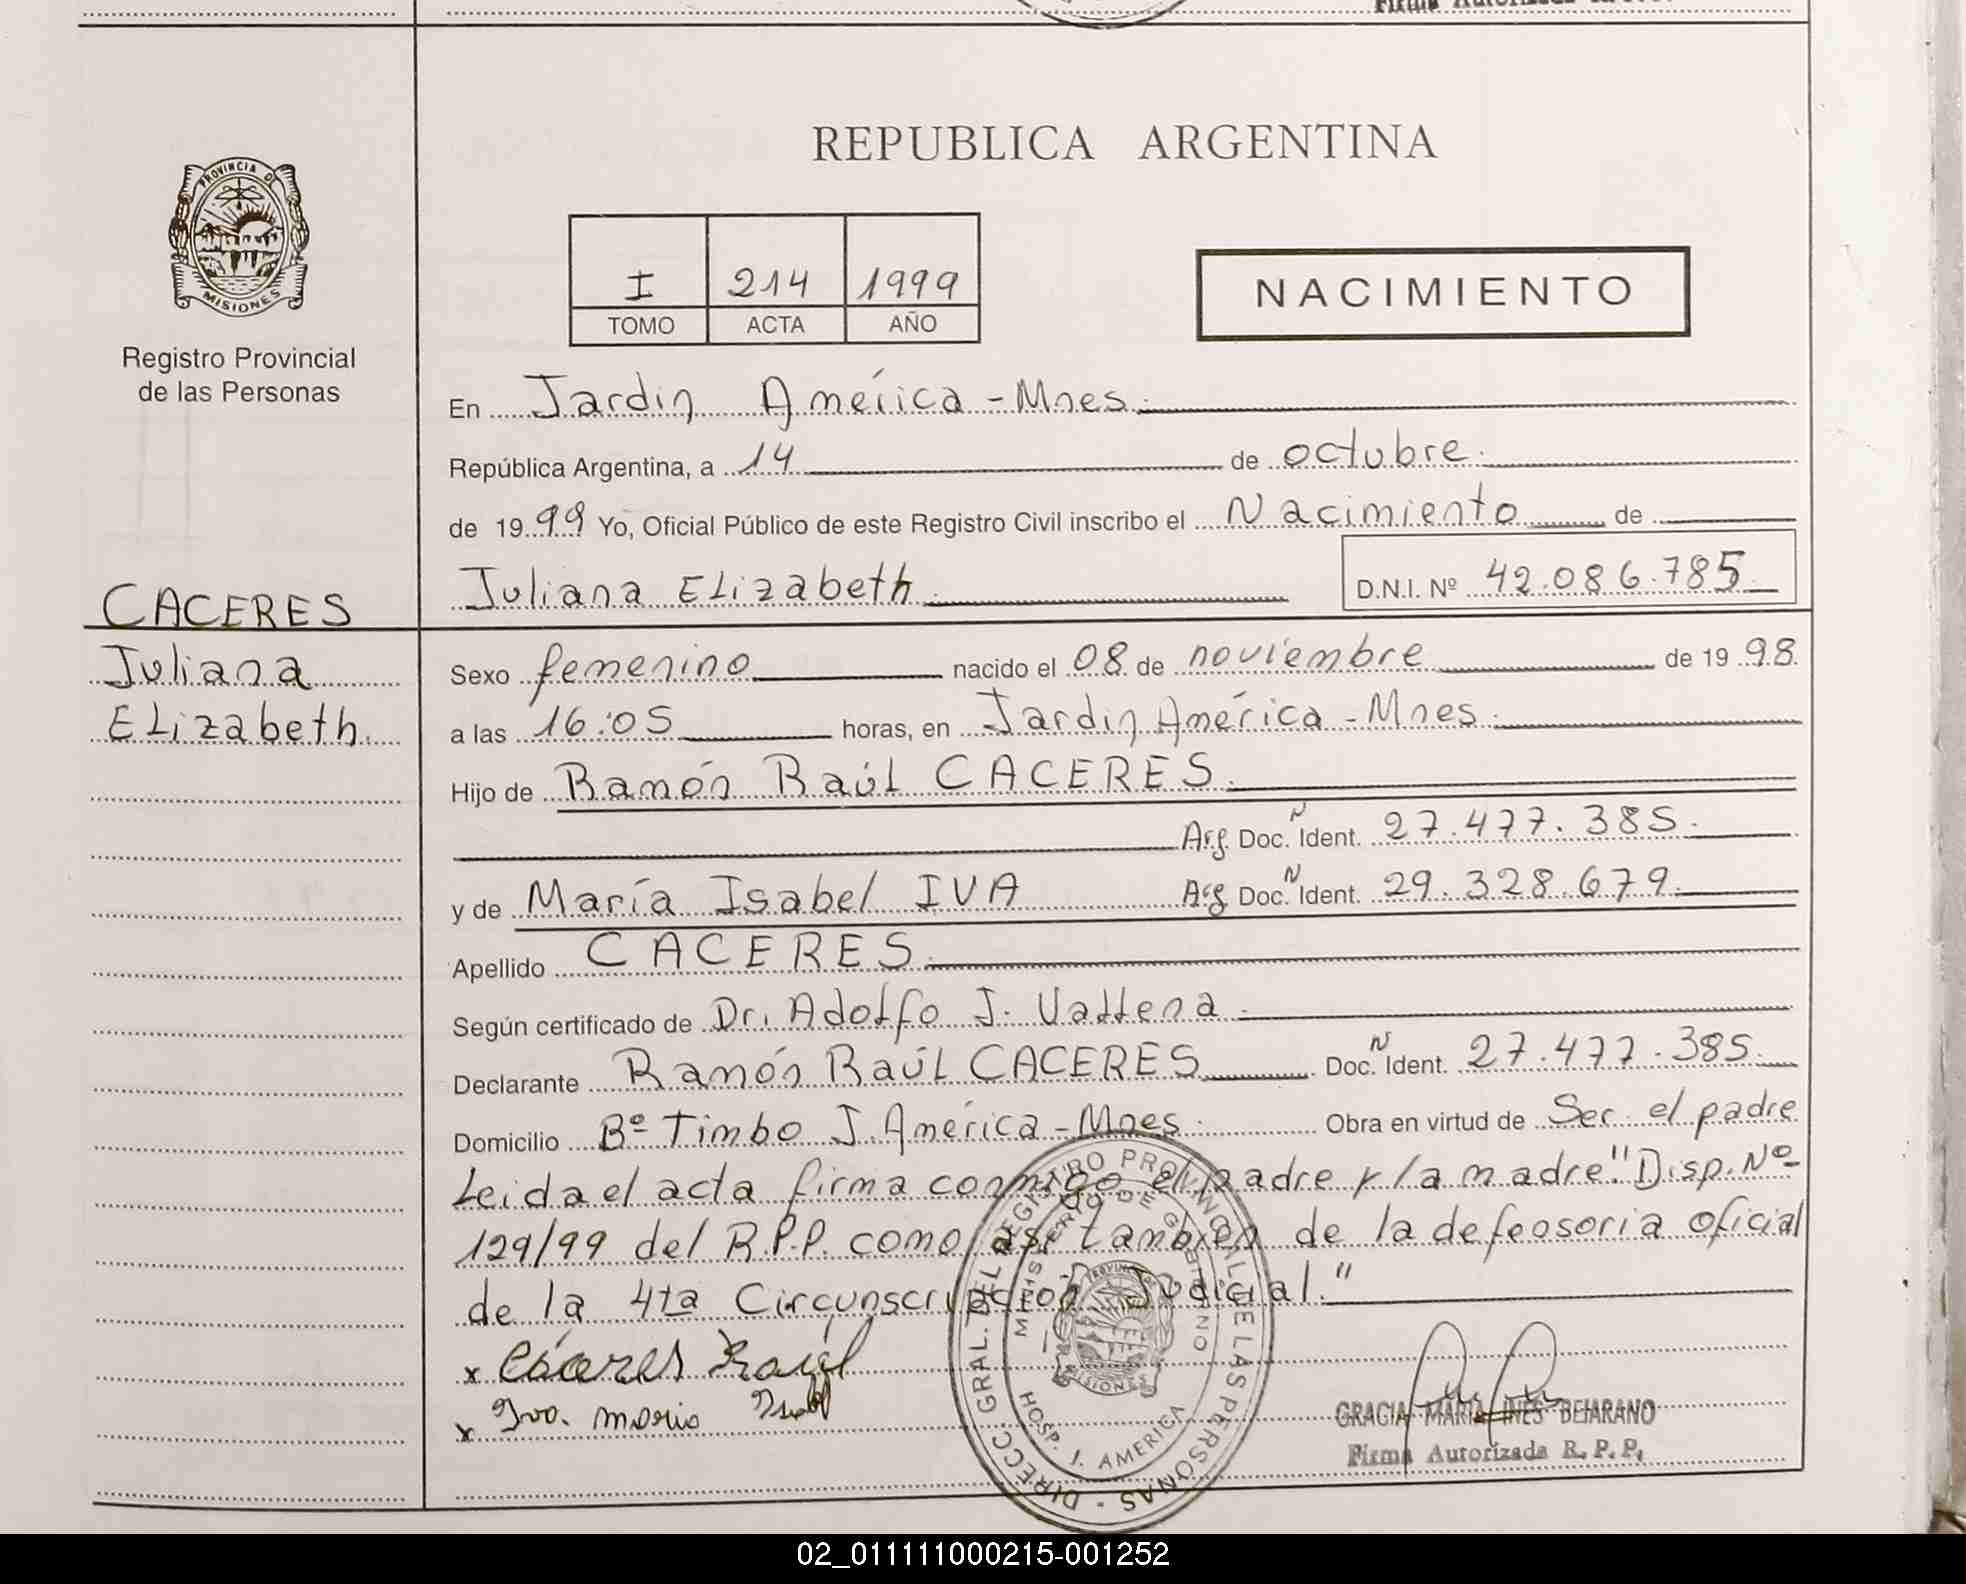 Firma Autorizada R.P.P.
REPUBLICA ARGENTINA
PROVINCIA DE
MISIONES
Registro Provincial
de las Personas
I 214 1999
TOMO ACTA AÑO
NACIMIENTO
En Jardin América - Mnes.
República Argentina, a 14 de octubre.
de 1999 Yo, Oficial Público de este Registro Civil inscribo el Nacimiento de
Juliana ELizabeth. D.N.I. Nº 42.086.785
CACERES
Juliana
ELizabeth.
Sexo femenino nacido el 08 de noviembre de 1998.
a las 16:05 horas, en Jardin América - Mnes.
Hijo de Ramón Raúl CACERES.
Arg Doc. N Ident. 27.477.385.
y de María Isabel IVA Arg Doc. N Ident. 29.328.679.
Apellido CACERES.
Según certificado de Dr. Adolfo J.
Declarante Ramón Raúl CACERES Doc. N Ident. 27.477.385.
Domicilio Bº Timbo J. América - Mnes. Obra en virtud de Ser el padre
Leida el acta firma conmigo el padre y la madre." Disp. Nº
129/99 del R.P.P. como así tambien de la defensoria oficial
de la 4ta Circunscripción Judicial."
x Cáceres Raúl
x Iva. maria Isabel
DIRECC. GRAL. DEL REGISTRO PROVINCIAL DE LAS PERSONAS -
MINISTERIO DE GOBIERNO
HOSP. J. AMERICA
PROVINCIA DE
MISIONES
GRACIA MARIA INES BEJARANO
Firma Autorizada R.P.P.
02_011111000215-001252